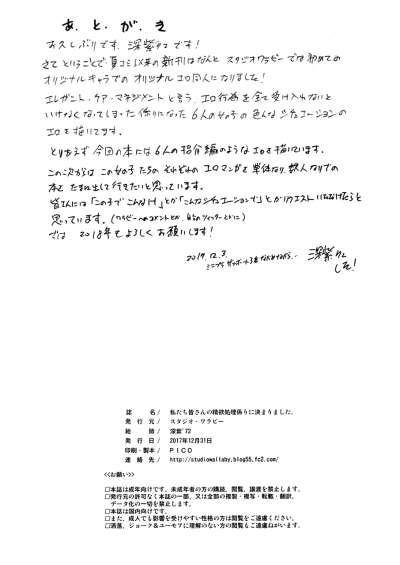 あ・と・が・き
お久しぶりです、深紫72です!
さてということで夏コミ以来の新刊はなんとスタジオワラビーでは初めての
オリジナルキャラでのオリジナルエロ同人になりました!
エレガント・ケア・マネジメントと言う、エロ行為を全て受け入れないと
いけなくなってしまった係りになった6人の女の子の色んなシチュエーションの
エロを描いてます。
とりあえず今回の本には6人の紹介編のようなエロを描いています、
この次からはこの女子たちのそれぞれのエロマンガを単体なり、数人なりでの
本をたまに出して行きたいと思っています。
皆さんには「この子でこんなH」とか「こんなシチュエーションで」とかリクエストいただけたらと
思っています。(ワラビーへのコメントとか、自分のツイッターとかに)
では、2018年もよろしくお願いします!
2017.12.3.
ながめながら…
深紫72
でした!
誌 名 / 私たち皆さんの精欲処理係りに決まりました。
発 行 元 / スタジオ・ワラビー
絵 師 / 深紫'72
発 行 日 / 2017年12月31日
印刷・製本 / PICO
連 絡 先 / http://studiowallaby.blog55.fc2.com/
<<お願い>>
□本誌は成年向けです。未成年者の方の購読、閲覧、譲渡を禁止します。
□発行元の許可なく本誌の一部、又は全部の複製・複写・転載・翻訳、
データ化の一切を禁止します。
□本誌は国内向けです。
□また、成人でも影響を受けやすい性格の方は閲覧をご遠慮ください。
□洒落、ジョーク&ユーモアに理解のない方の閲覧もご遠慮ねがいます。